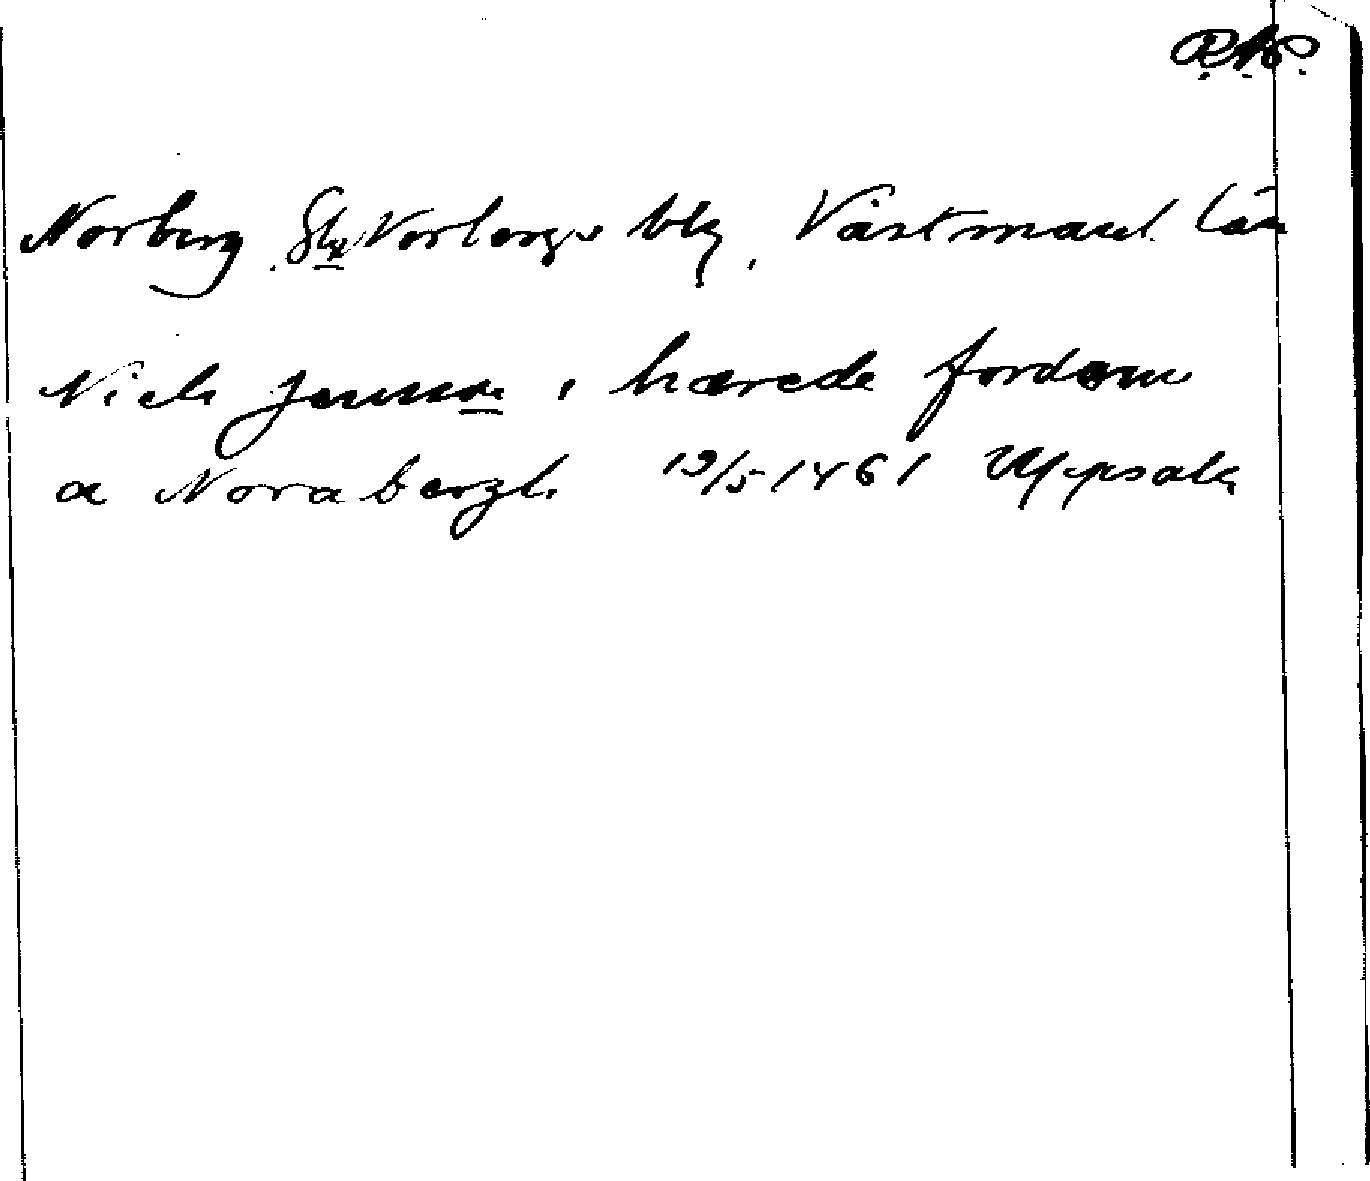 RAP.
Norberg, Sn, Norbergs blg, Västmanl. län
Niels Jensson i hærede fordom
a Norabergh 13/5 1461 Uppsala